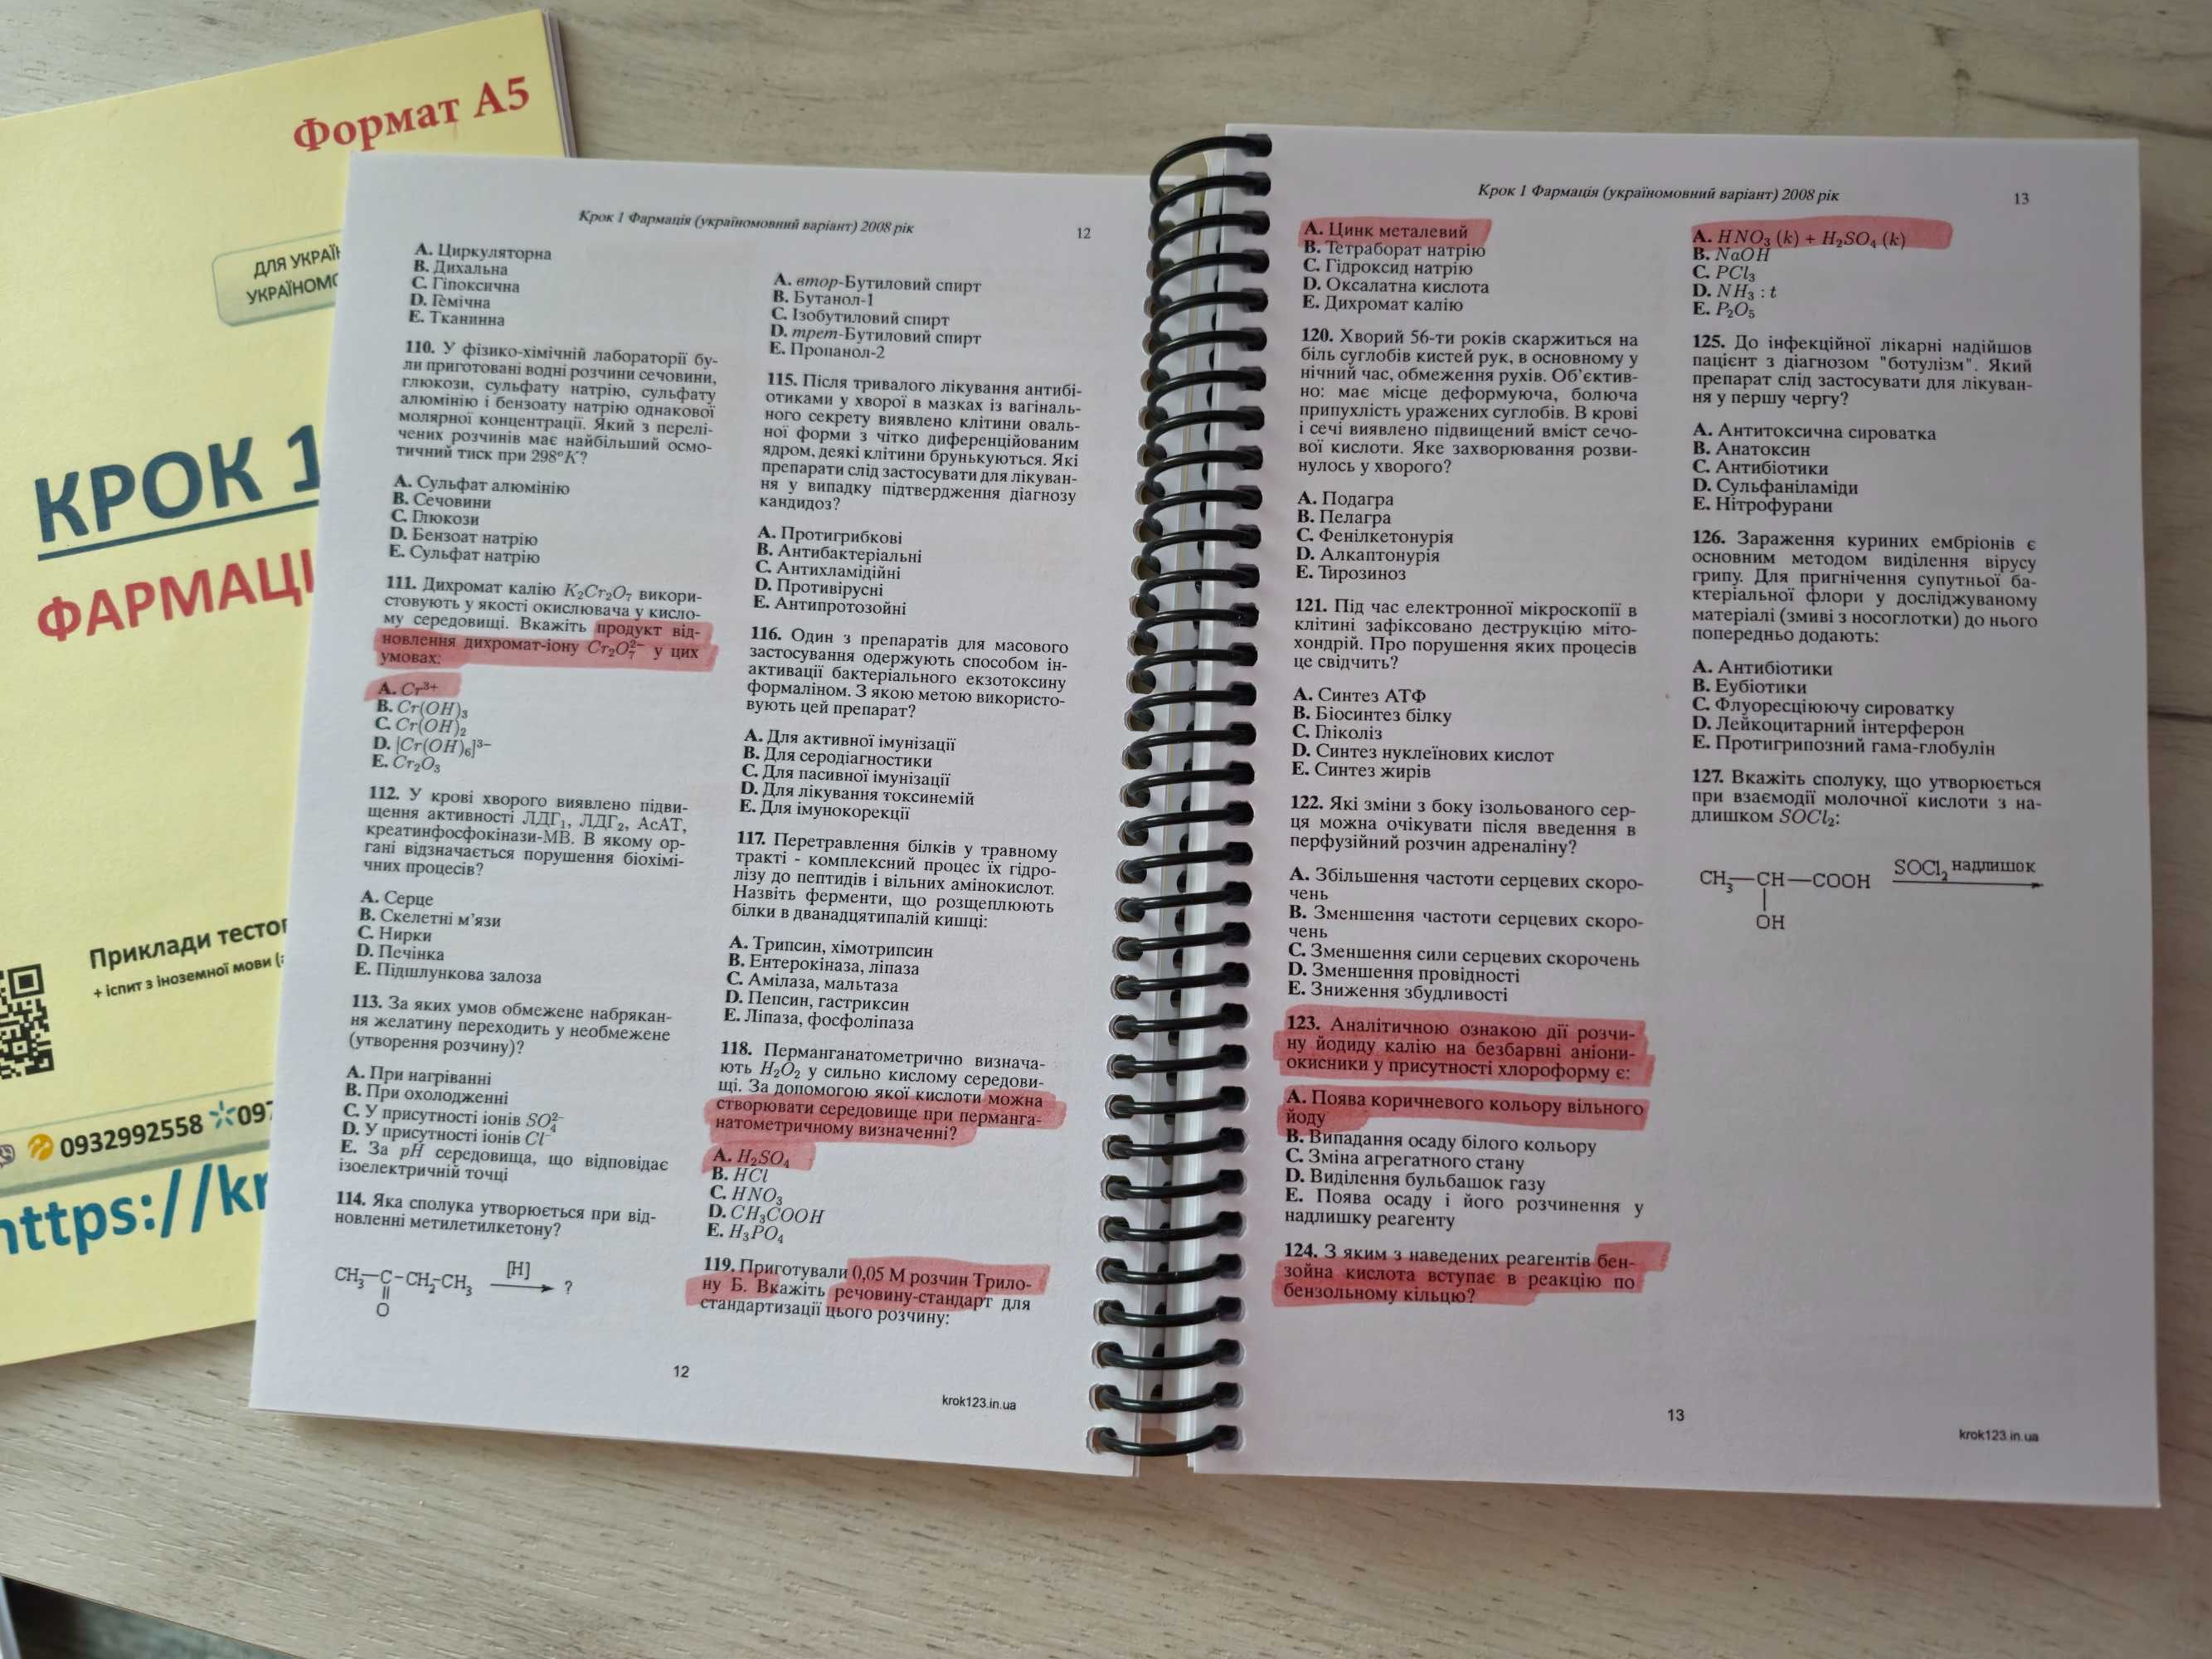 Формат А5
ДЛЯ
КРОК 1
Приклади
+ іспит з іноземної мови
0932992558
https://kr
Крок 1 Фармація (україномовний варіант) 2008 рік
12
A. Циркуляторна
B. Дихальна
C. Гіпоксична
D. Гемічна
E. Тканинна
110. У фізико-хімічній лабораторії бу-
ли приготовані водні розчини сечовини,
глюкози, сульфату натрію, сульфату
алюмінію і бензоату натрію однакової
молярної концентрації. Який з перелі-
чених розчинів має найбільший осмо-
тичний тиск при 298°K?
A. Сульфат алюмінію
B. Сечовини
C. Глюкози
D. Бензоат натрію
E. Сульфат натрію
111. Дихромат калію K₂Cr₂O₇ викори-
стовують у якості окислювача у кисло-
му середовищі. Вкажіть продукт від-
новлення дихромат-іону Cr₂O₇²⁻ у цих
умовах:
A. Cr³⁺
B. Cr(OH)₃
C. Cr(OH)₂
D. [Cr(OH)₆]³⁻
E. Cr₂O₃
112. У крові хворого виявлено підви-
щення активності ЛДГ₁, ЛДГ₂, АсАТ,
креатинфосфокінази-МВ. В якому ор-
гані відзначається порушення біохімі-
чних процесів?
A. Серце
B. Скелетні м'язи
C. Нирки
D. Печінка
E. Підшлункова залоза
113. За яких умов обмежене набрякан-
ня желатину переходить у необмежене
(утворення розчину)?
A. При нагріванні
B. При охолодженні
C. У присутності іонів SO₄²⁻
D. У присутності іонів Cl⁻
E. За pH середовища, що відповідає
ізоелектричній точці
114. Яка сполука утворюється при від-
новленні метилетилкетону?
CH₃—C-CH₂-CH₃ [H] ?
O
A. втор-Бутиловий спирт
B. Бутанол-1
C. Ізобутиловий спирт
D. трет-Бутиловий спирт
E. Пропанол-2
115. Після тривалого лікування антибі-
отиками у хворої в мазках із вагіналь-
ного секрету виявлено клітини оваль-
ної форми з чітко диференційованим
ядром, деякі клітини брунькуються. Які
препарати слід застосувати для лікуван-
ня у випадку підтвердження діагнозу
кандидоз?
A. Протигрибкові
B. Антибактеріальні
C. Антихламідійні
D. Противірусні
E. Антипротозойні
116. Один з препаратів для масового
застосування одержують способом ін-
активації бактеріального екзотоксину
формаліном. З якою метою використо-
вують цей препарат?
A. Для активної імунізації
B. Для серодіагностики
C. Для пасивної імунізації
D. Для лікування токсинемій
E. Для імунокорекції
117. Перетравлення білків у травному
тракті - комплексний процес їх гідро-
лізу до пептидів і вільних амінокислот.
Назвіть ферменти, що розщеплюють
білки в дванадцятипалій кишці:
A. Трипсин, хімотрипсин
B. Ентерокіназа, ліпаза
C. Амілаза, мальтаза
D. Пепсин, гастриксин
E. Ліпаза, фосфоліпаза
118. Перманганатометрично визнача-
ють H₂O₂ у сильно кислому середови-
щі. За допомогою якої кислоти можна
створювати середовище при перманга-
натометричному визначенні?
A. H₂SO₄
B. HCl
C. HNO₃
D. CH₃COOH
E. H₃PO₄
119. Приготували 0,05 М розчин Трило-
ну Б. Вкажіть речовину-стандарт для
стандартизації цього розчину:
12
krok123.in.ua
Крок 1 Фармація (україномовний варіант) 2008 рік
13
A. Цинк металевий
B. Тетраборат натрію
C. Гідроксид натрію
D. Оксалатна кислота
E. Дихромат калію
120. Хворий 56-ти років скаржиться на
біль суглобів кистей рук, в основному у
нічний час, обмеження рухів. Об'єктив-
но: має місце деформуюча, болюча
припухлість уражених суглобів. В крові
і сечі виявлено підвищений вміст сечо-
вої кислоти. Яке захворювання розви-
нулось у хворого?
A. Подагра
B. Пелагра
C. Фенілкетонурія
D. Алкаптонурія
E. Тирозиноз
121. Під час електронної мікроскопії в
клітині зафіксовано деструкцію міто-
хондрій. Про порушення яких процесів
це свідчить?
A. Синтез АТФ
B. Біосинтез білку
C. Гліколіз
D. Синтез нуклеїнових кислот
E. Синтез жирів
122. Які зміни з боку ізольованого сер-
ця можна очікувати після введення в
перфузійний розчин адреналіну?
A. Збільшення частоти серцевих скоро-
чень
B. Зменшення частоти серцевих скоро-
чень
C. Зменшення сили серцевих скорочень
D. Зменшення провідності
E. Зниження збудливості
123. Аналітичною ознакою дії розчи-
ну йодиду калію на безбарвні аніони-
окисники у присутності хлороформу є:
A. Поява коричневого кольору вільного
йоду
B. Випадання осаду білого кольору
C. Зміна агрегатного стану
D. Виділення бульбашок газу
E. Поява осаду і його розчинення у
надлишку реагенту
124. З яким з наведених реагентів бен-
зойна кислота вступає в реакцію по
бензольному кільцю?
A. HNO₃ (k) + H₂SO₄ (k)
B. NaOH
C. PCl₃
D. NH₃ : t
E. P₂O₅
125. До інфекційної лікарні надійшов
пацієнт з діагнозом "ботулізм". Який
препарат слід застосувати для лікуван-
ня у першу чергу?
A. Антитоксична сироватка
B. Анатоксин
C. Антибіотики
D. Сульфаніламіди
E. Нітрофурани
126. Зараження куриних ембріонів є
основним методом виділення вірусу
грипу. Для пригнічення супутньої ба-
ктеріальної флори у досліджуваному
матеріалі (змиві з носоглотки) до нього
попередньо додають:
A. Антибіотики
B. Еубіотики
C. Флуоресціюючу сироватку
D. Лейкоцитарний інтерферон
E. Протигрипозний гама-глобулін
127. Вкажіть сполуку, що утворюється
при взаємодії молочної кислоти з на-
длишком SOCl₂:
CH₃—CH—COOH SOCl₂ надлишок
OH
13
krok123.in.ua